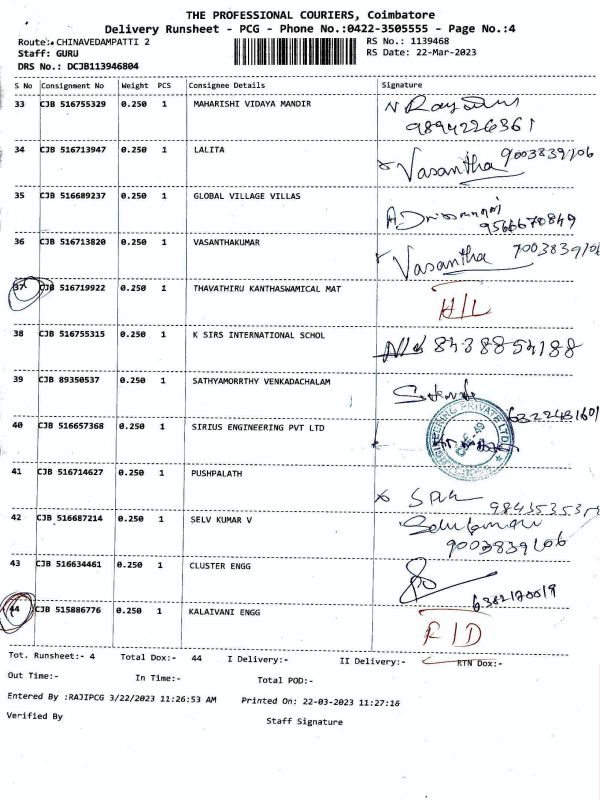 THE PROFESSIONAL COURIERS, Coimbatore
Delivery Runsheet - PCG - Phone No.:0422-3505555 - Page No.:4
Route: CHINAVEDAMPATTI 2 RS No.: 1139468
Staff: GURU RS Date: 22-Mar-2023
DRS No.: DCJB113946804
S No Consignment No Weight PCS Consignee Details Signature
33 CJB 516755329 0.250 1 MAHARISHI VIDAYA MANDIR
9894226361
34 CJB 516713947 0.250 1 LALITA Vasantha 9003839106
35 CJB 516689237 0.250 1 GLOBAL VILLAGE VILLAS
9566670849
36 CJB 516713820 0.250 1 VASANTHAKUMAR Vasantha 9003839106
37 CJB 516719922 0.250 1 THAVATHIRU KANTHASWAMICAL MAT H/L
38 CJB 516755315 0.250 1 K SIRS INTERNATIONAL SCHOL 8438854188
39 CJB 89350537 0.250 1 SATHYAMORRTHY VENKADACHALAM
40 CJB 516657368 0.250 1 SIRIUS ENGINEERING PVT LTD
41 CJB 516714627 0.250 1 PUSHPALATH
42 CJB 516687214 0.250 1 SELV KUMAR V
9003839106
43 CJB 516634461 0.250 1 CLUSTER ENGG
44 CJB 515886776 0.250 1 KALAIVANI ENGG R/D
Tot. Runsheet:- 4 Total Dox:- 44 I Delivery:- II Delivery:- RTN Dox:-
Out Time:- In Time:- Total POD:-
Entered By :RAJIPCG 3/22/2023 11:26:53 AM Printed On: 22-03-2023 11:27:16
Verified By Staff Signature